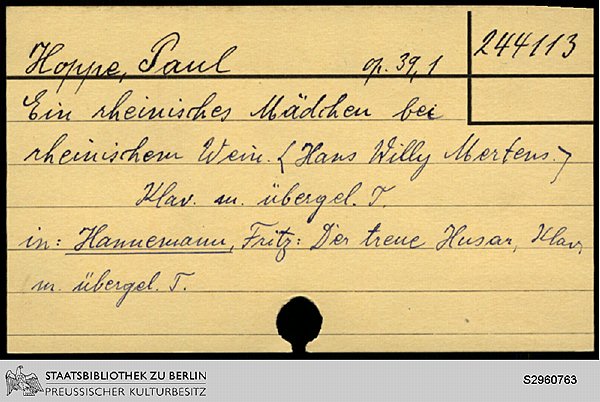 Hoppe, Paul op. 39,1 244113
Ein rheinisches Mädchen bei
rheinischem Wein. <Hans Willy Mertens.>
Klav. m. übergel. T.
in: Hannemann, Fritz: Der treue Husar, Klav.
m. übergel. T.
STAATSBIBLIOTHEK ZU BERLIN
PREUSSISCHER KULTURBESITZ
S2960763